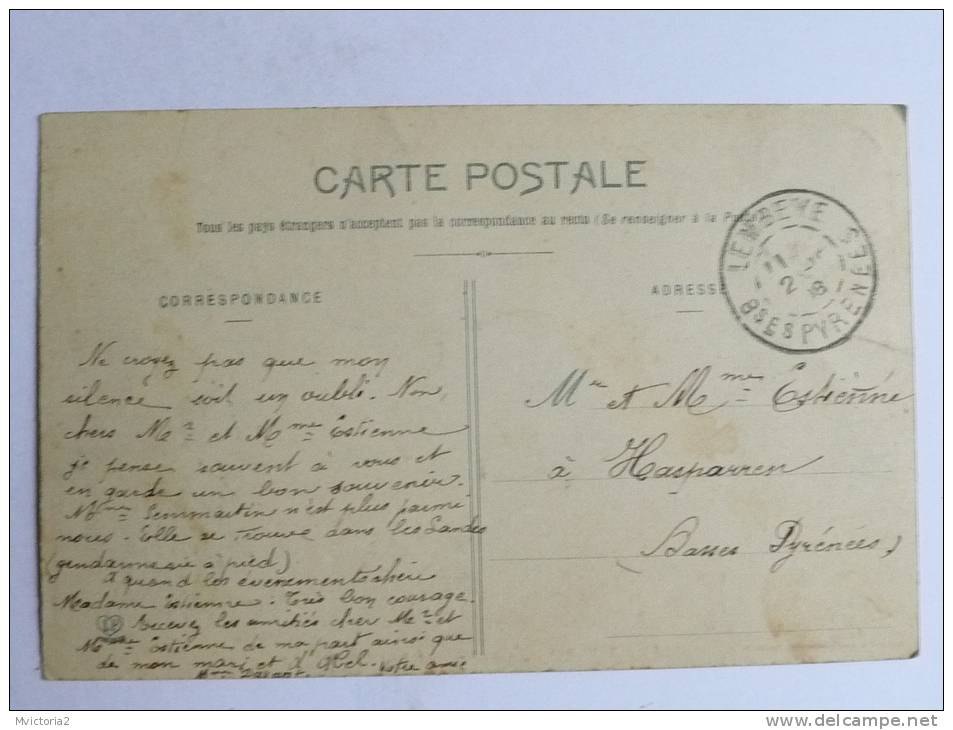 CARTE POSTALE
Tous les pays étrangers n'acceptent pas la correspondance au recto (Se renseigner à la Poste)
CORRESPONDANCE
ADRESSE
LEMBEYE
2
BSES PYRENEES
Ne croyez pas que mon
silence soit un oubli. Non,
chers Mr et Mme Estienne
je pense souvent à vous et
en garde un bon souvenir.
Mme n'est plus parmi
nous. Elle se trouve dans les Landes
(gendarmerie à pied)
A quand les évènements chère
Madame Estienne. Très bon courage.
Recevez les amitiés cher Mr et
Mme Estienne de ma part ainsi que
de mon mari et d'Abel. Votre amie
Mme
Mr et Mme Estienne
à Hasparren
(Basses Pyrénées)
Mvictoria2
delcampe.net